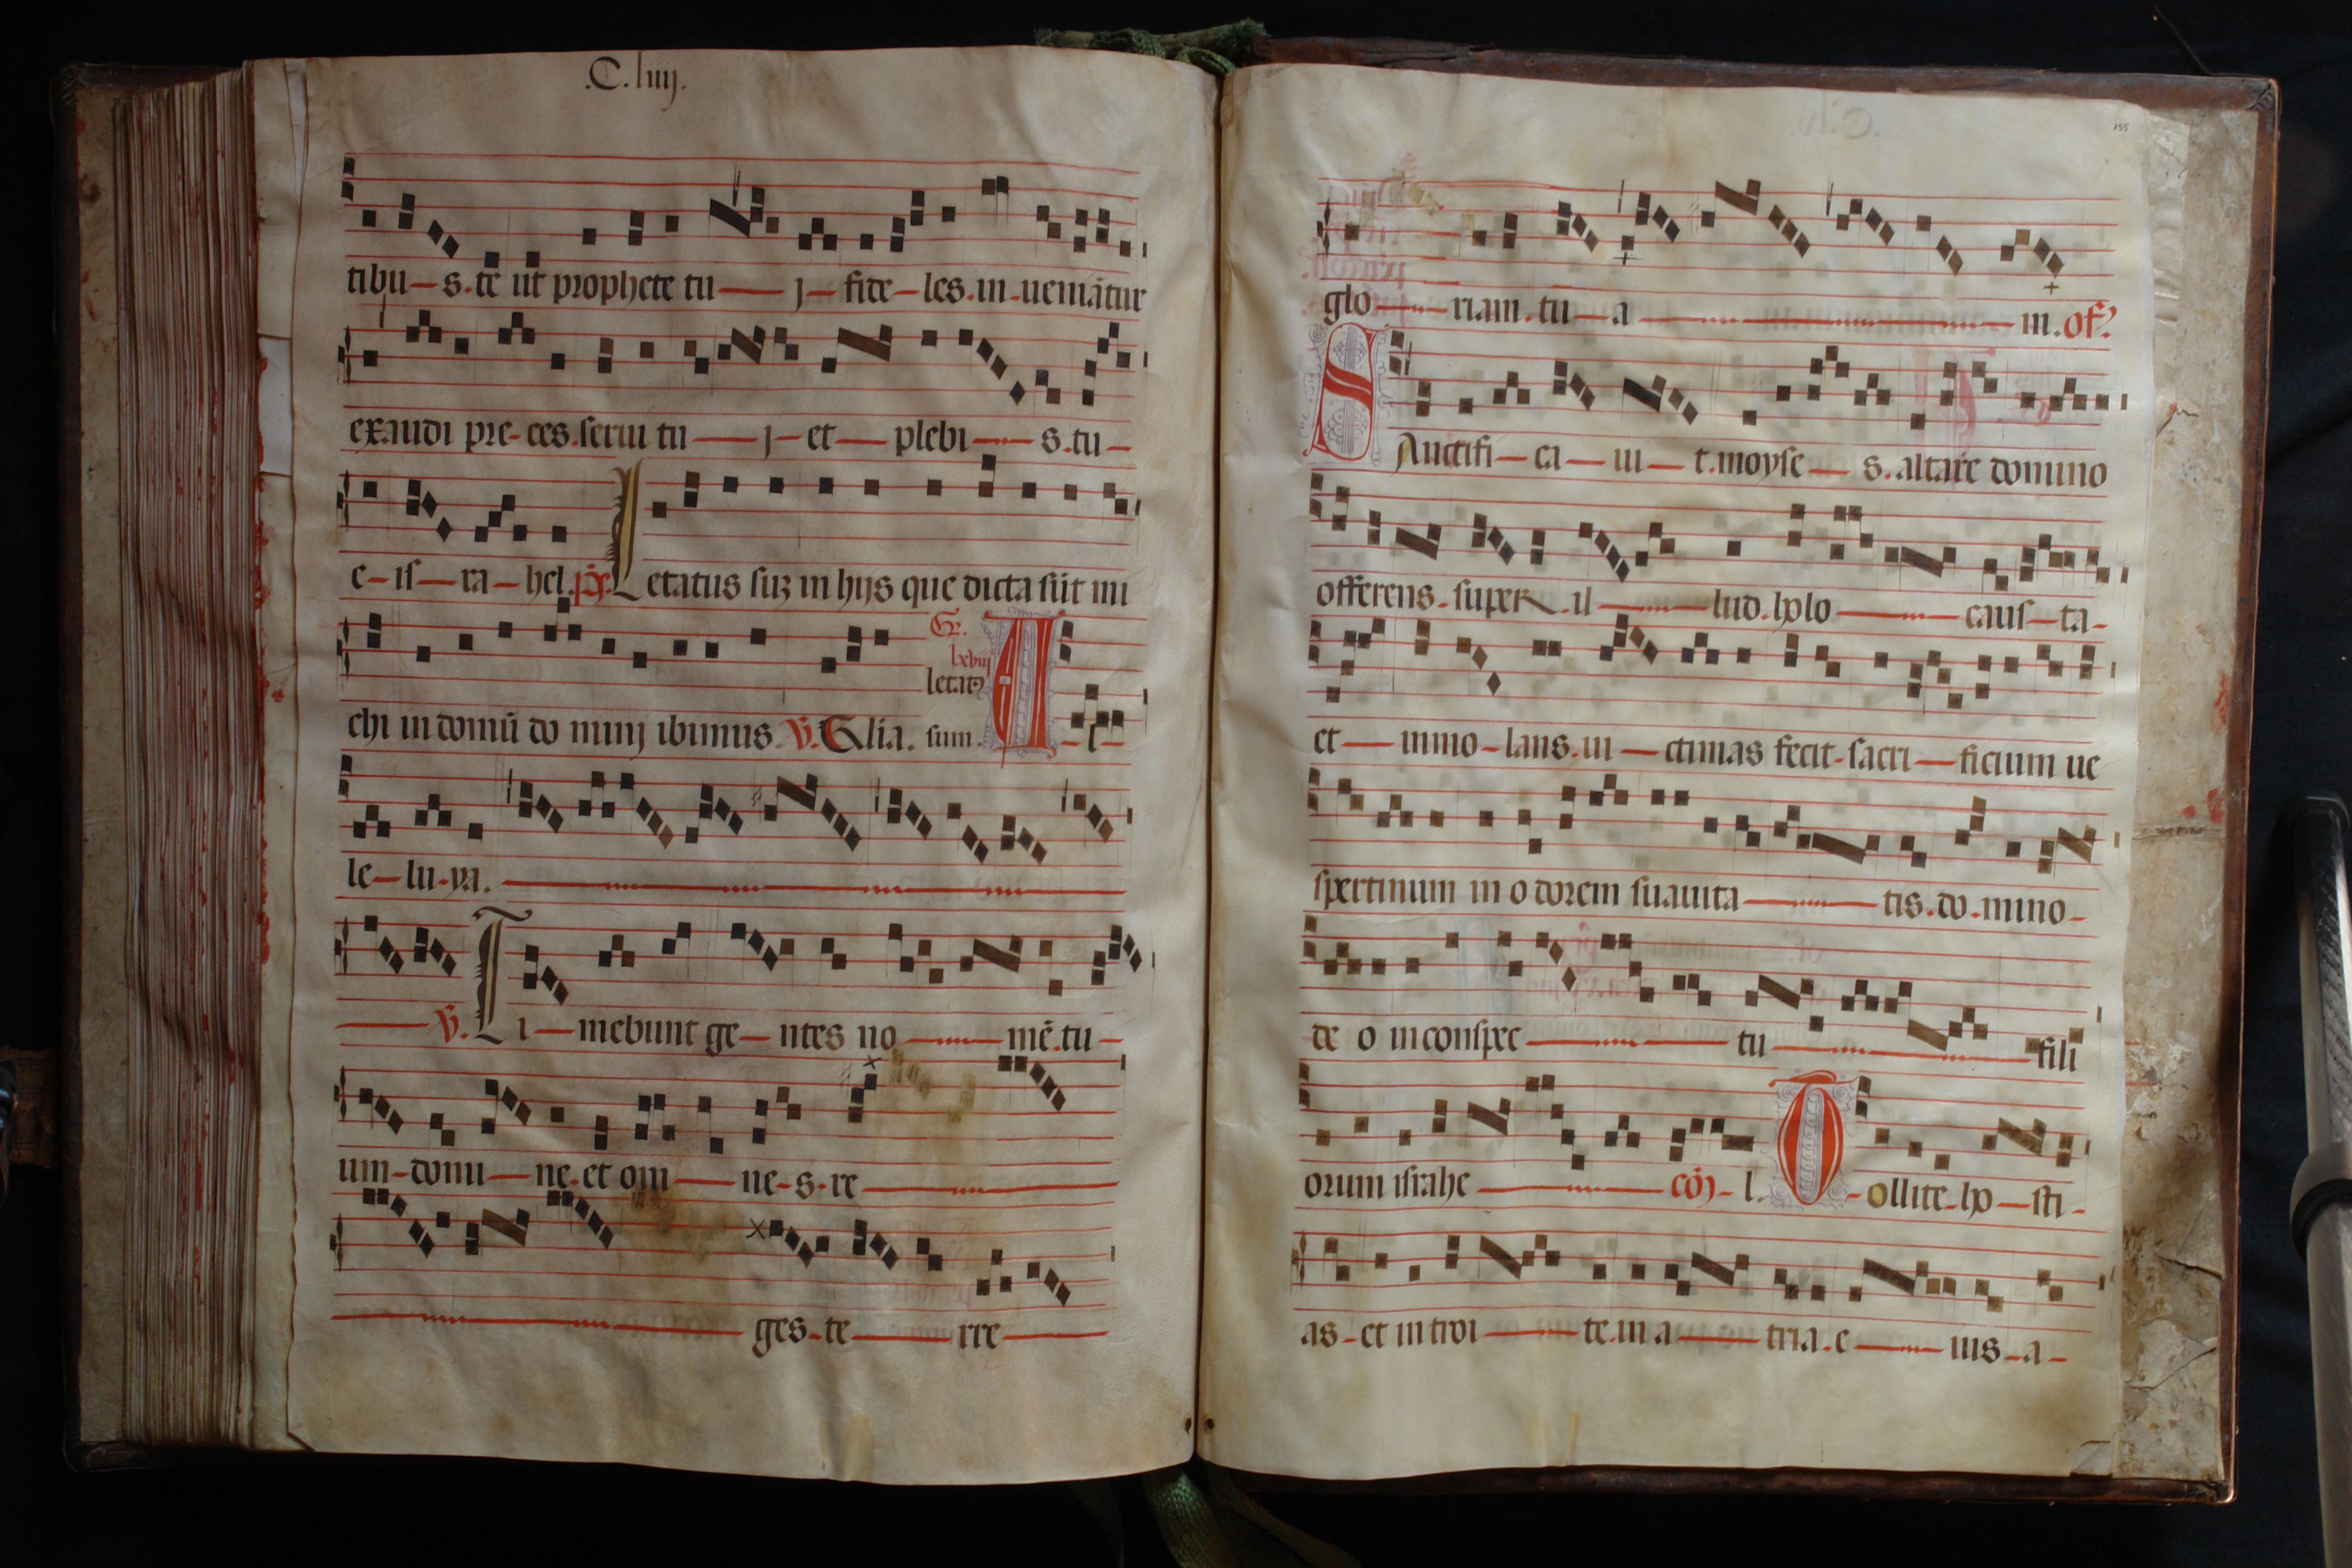 .C.liiij.
tibu-s.te ut prophete tu-j-fide-les.in-ueniātur
exaudi pre-ces.serui tu-j-et-plebi-s.tu-
e-is-ra-hel.ps. Letatus suʒ in hijs que dicta sūt mi
Gr.
lxviij
letatꝰ
chi in domū do minj ibimus. V. Glia. sum. A-l-
le-lu-ya.
V. Ti-mebunt ge-ntes no-mē.tu-
um-domi-ne.et om-ne-s.re
ges-te-rre
155
glo-riam.tu-a-m.of?
SAnctifi-ca-ui-t.moyse-s.altare domino
offerens-super.il-lud.holo-caus-ta-
et-immo-lans.ui-ctimas fecit-sacri-ficium ue
spertinum in o dorem suauita-tis.do.mino-
de o in conspec-tu-fili
orum israhe-cōj-l. T-ollite-ho-sti-
as-et introi-te.in a-tria.e-ius-a-